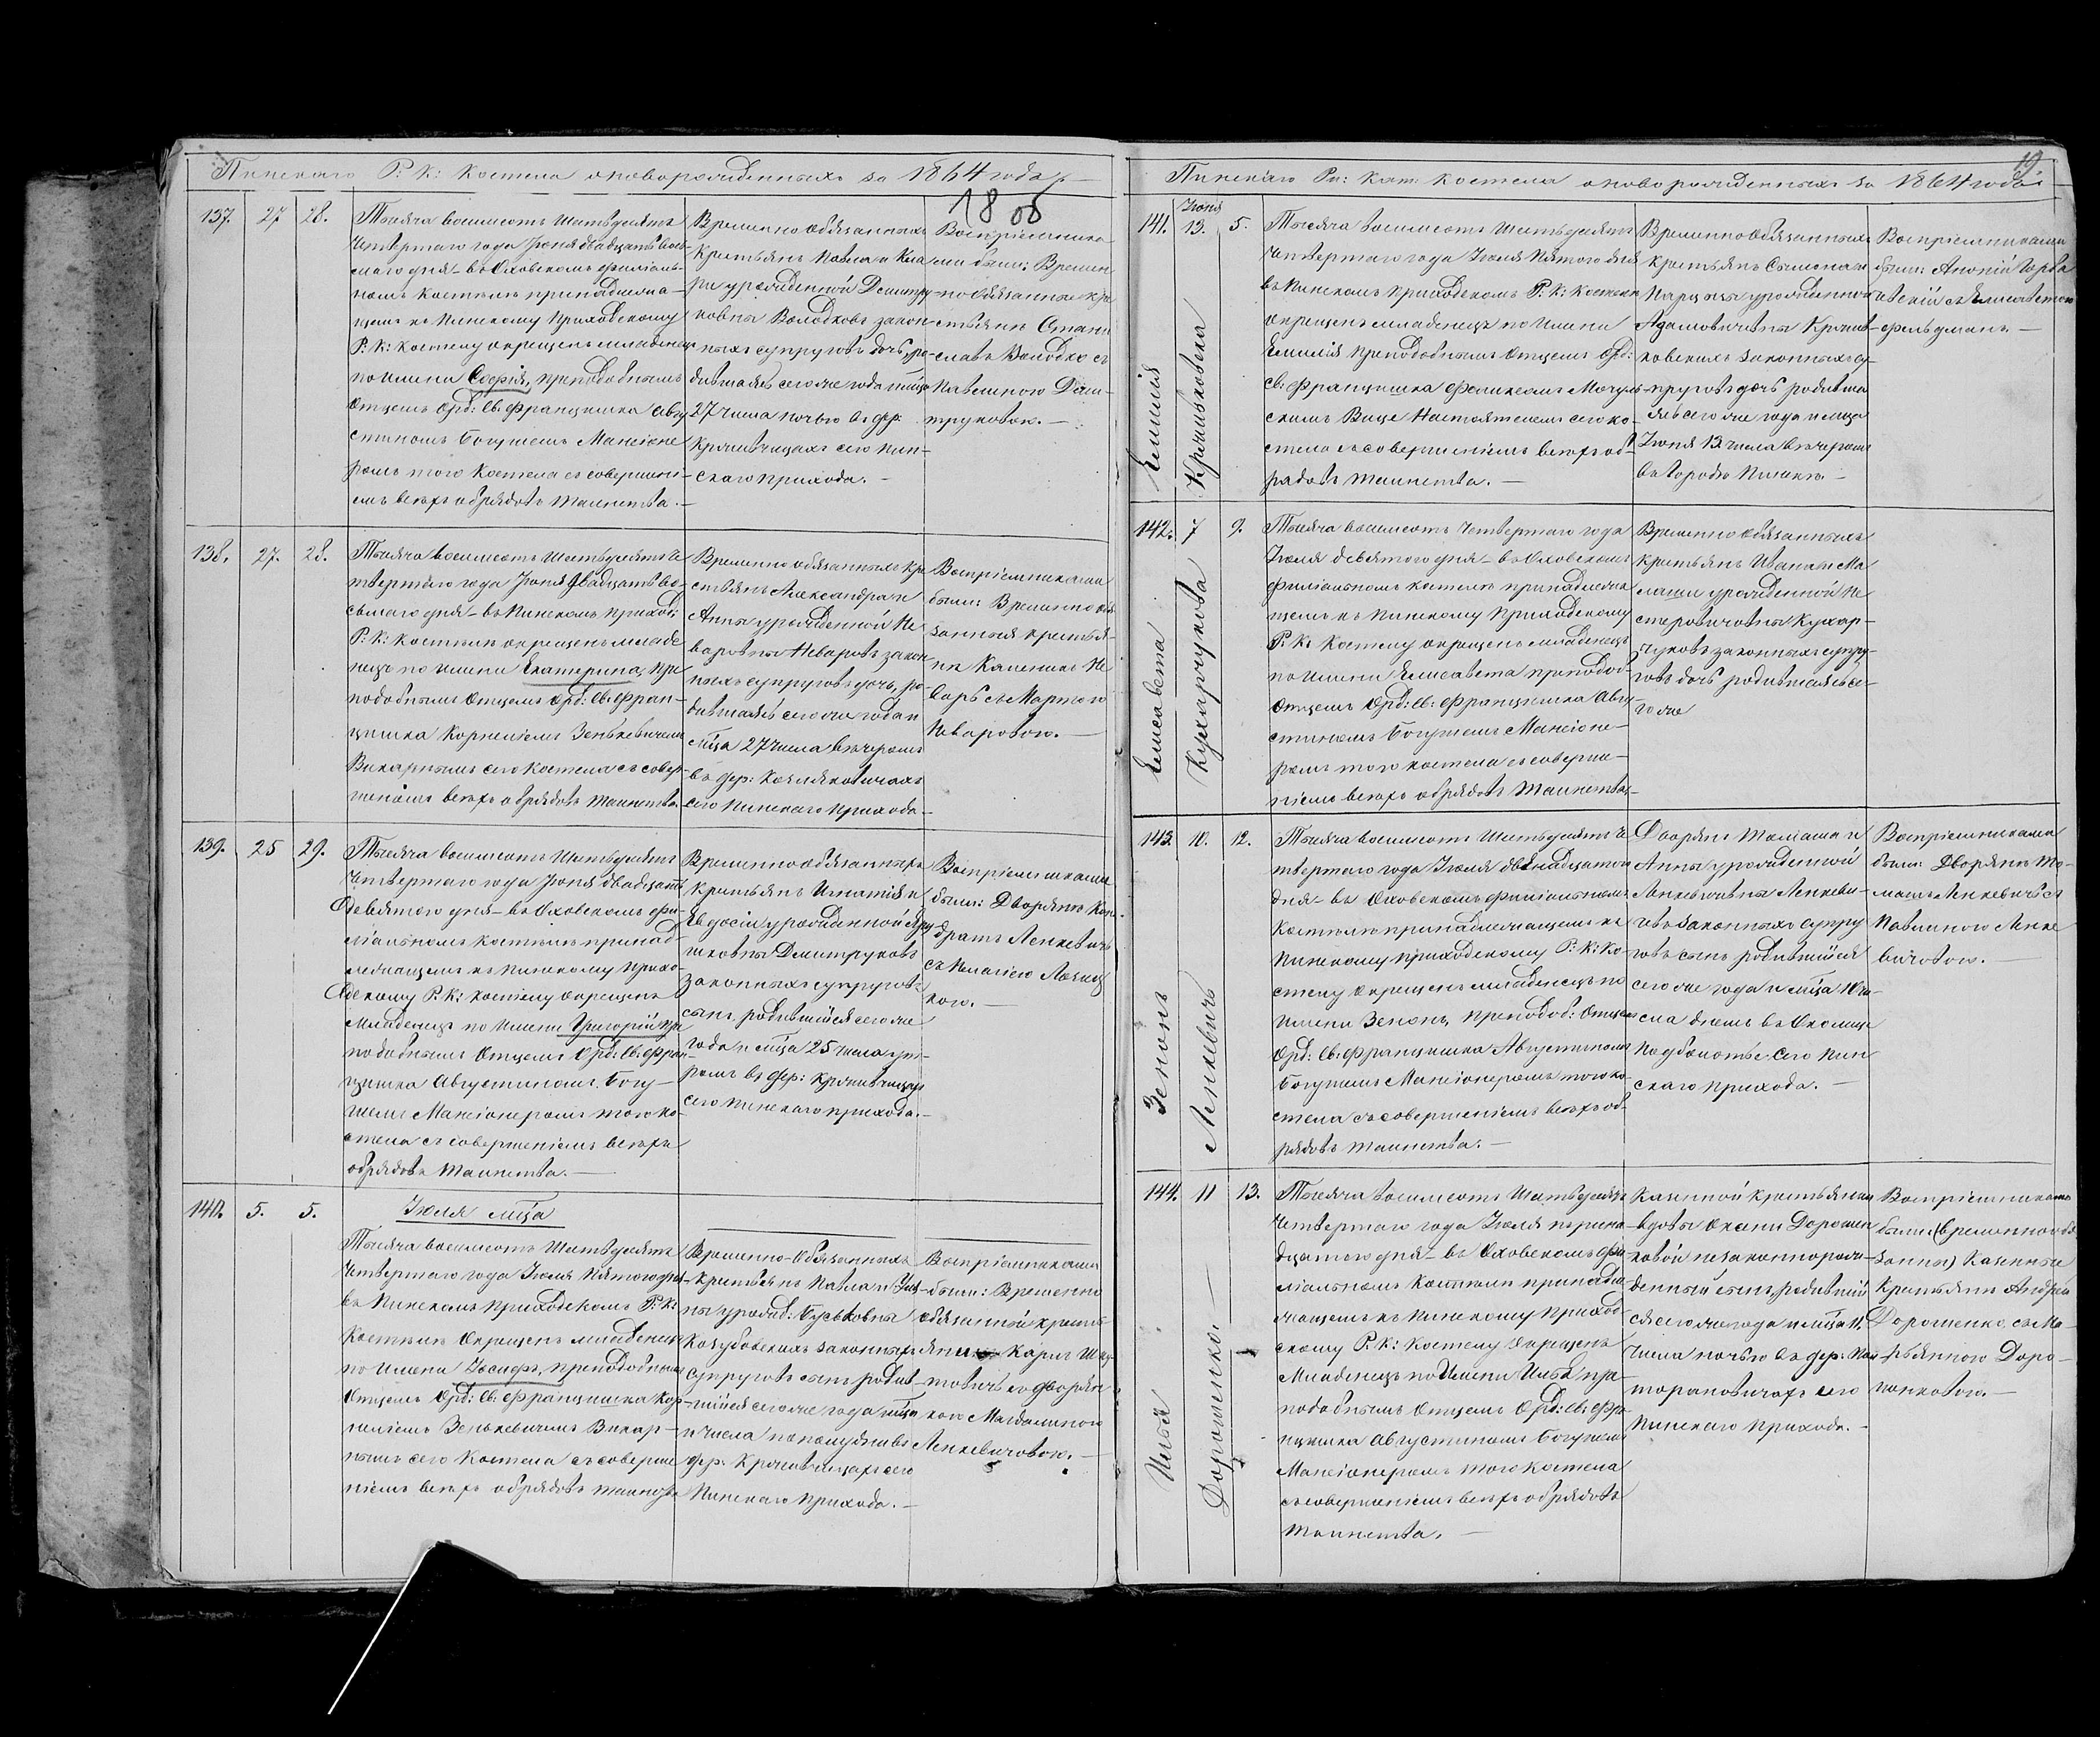 Пинскаго Р: К: Костела о новорожденныхъ за 1864 года.
18 об
137. 27 28.
Тысяча восемьсотъ Шестьдесятъ
Четвертаго года Іюня двадцать вось-
маго дня — въ Оховскомъ филіаль-
номъ Костелѣ принадлежа-
щемъ къ Пинскому Приходскому
Р: К: Костелу окрещенъ младенецъ
по имени Софія, преподобнымъ
Отцемъ Орд: Св: Францишка Авгу-
стиномъ Богушемъ Мансіоне-
ромъ того Костела съ совершені-
емъ всѣхъ обрядовъ таинства. —
Временно обязанныхъ
Крестьянъ Павла и Кла
ры урожденной Дмитру-
ковны Володковъ закон-
ныхъ супруговъ дочь, ро-
дившаяся сего же года и мца
27 числа ночью въ дер.
Кривчицахъ сего Пин-
скаго прихода. —
Воспріемника
ми были: Времен
но обязанные кре
стьянъ Стани
славъ Володко съ
Павлиною Дми-
труковою. —
138. 27. 28.
Тысяча восемьсотъ Шестьдесятъ Че
твертаго года Іюня двадцать во-
сьмаго дня — въ Пинскомъ приход:
Р: К: Костелѣ окрещенъ младе
нецъ по имени Екатерина, пре
подобнымъ Отцемъ Орд: Св: Фран-
цишка Корнеліемъ Зенькевичемъ
Викарнымъ сего Костела съ совер-
шеніемъ всѣхъ обрядовъ таинства.
Временно обязанныхъ кре
стьянъ Александра и
Анны урожденной Не
варовны Неваровъ закон
ныхъ супруговъ дочь, ро-
дившаяся сего же года и
мца 27 числа вечеромъ
въ дер:
сего Пинскаго прихода. —
Воспріемниками
были: Временно обя
занныя крестья-
не Каленикъ Не
варъ съ Мартою
Неваровою. —
139. 25 29.
Тысяча восемьсотъ Шестьдесятъ
Четвертаго года Іюня двадцать
девятого дня — въ Оховскомъ фи-
ліальномъ Костелѣ принад-
лежащемъ къ Пинскому прихо-
дскому Р: К: Костелу окрещенъ
Младенецъ по Имени Григорій пре
подобнымъ Отцемъ Орд: Св: Фран
цишка Августиномъ Богу-
шемъ Мансіонеромъ того ко-
стела съ совершеніемъ всѣхъ
обрядовъ таинства. —
Временно обязанныхъ
Крестьянъ Игнатія и
Евдосіи урожденной
Дмитруковъ
законныхъ супруговъ
сынъ родившійся сего же
года и мца 25 числа ут-
ромъ въ дер: Кривчицахъ
сего Пинскаго прихода. —
Воспріемниками
были: Дворянъ Кон-
дратъ Ленкевичъ
съ Пелагіею
кою. —
140. 5. 5.
Іюля мца
Тысяча восемьсотъ Шестьдесятъ
Четвертаго года Іюля Пятого дня
въ Пинскомъ приходскомъ Р: К:
Костелѣ Окрещенъ младенецъ
по имени Іосифъ, преподобнымъ
Отцемъ Орд: Св: Францишка Кор-
неліемъ Зенькевичемъ Викар-
нымъ сего Костела съ соверше
ніемъ всѣхъ обрядовъ таинства
Временно-Обязанныхъ
Крестьянъ Павла и
ны урожд:
законныхъ
Супруговъ сынъ родив-
шійся сего же года мца
и числа пополудни въ
дер. Кривчицахъ сего
Пинскаго прихода. —
Воспріемниками
были: Временно
обязанный кресть
янинъ Карлъ
съ дворян
кою Магдалиною
Ленкевичовою. —
Пинскаго Ри: Кат: Костела о новорожденныхъ за 1864 года
19.
141. Іюня 13. 5.
Емилія
Крживковска
Тысяча восемьсотъ Шестьдесятъ
Четвертаго года Іюля Пятого дня
въ Пинскомъ приходскомъ Р: К: Костелѣ
окрещенъ младенецъ по имени
Емилія преподобнымъ Отцемъ Орд:
Св: Францишка Феликсомъ
скимъ Вице Настоятелемъ сего ко-
стела съ совершеніемъ всѣхъ об-
рядовъ таинства. —
Временно Обязанныхъ
крестьянъ Сымона и
урожденной
Адамовичовны Кржив-
ковскихъ законныхъ су-
пруговъ дочь родивша
яся сего же года и мца
Іюня 13 числа вечеромъ
въ городѣ Пинскѣ. —
Воспріемниками
были: Апоній Горба
цевскій съ Елисаветою
Фельдманъ. —
142. 7 9.
Елисавета
Кухарчукова
Тысяча восемьсотъ Четвертаго года
Іюля девятого дня — въ Оховскомъ
филіальномъ костелѣ принадлежа
щемъ къ Пинскому Приходскому
Р: К: Костелу окрещенъ младенецъ
по имени Елисавета преподоб-
Отцемъ Орд: Св: Францишка Авгу-
стиномъ Богушемъ Мансіоне-
ромъ того костела съ соверше-
ніемъ всѣхъ обрядовъ таинства. —
Временно Обязанныхъ
крестьянъ Ивана и Ма
лаши урожденной Не
стеровичовны Кухар-
чуковъ законныхъ супру-
говъ дочь родившаяся се-
го же
143. 10. 12.
Зенонъ
Ленкевичъ
Тысяча восемьсотъ Шестьдесятъ Че
твертаго года Іюля двѣнадцатого
дня — въ Оховскомъ филіальномъ
Костелѣ принадлежащемъ къ
Пинскому приходскому Р: К: Ко-
стелу окрещенъ младенецъ по
имени Зенонъ, преподоб: Отцемъ
Орд: Св: Францишка Августиномъ
Богушемъ Мансіонеромъ того ко-
стела съ совершеніемъ всѣхъ об-
рядовъ таинства. —
Дворянъ Томаша и
Анны урожденной
Ленкевичовны Ленкеви-
човъ законныхъ супру
говъ сынъ родившійся
сего же года и мца 10 чи-
сла днемъ въ Околицѣ
Подболотье сего Пин
скаго прихода. —
Воспріемниками
были: Дворянъ То-
машъ Ленкевичъ съ
Павлиною Ленке
вичовою. —
144. 11 13.
Илья
Дорошенко. —
Тысяча восемьсотъ Шестьдесятъ
Четвертаго года Іюля трина-
дцатого дня — въ Оховскомъ фи-
ліальномъ Костелѣ принадле
жащемъ къ Пинскому приход-
скому Р: К: Костелу окрещенъ
Младенецъ по Имени Илья пре-
подобнымъ Отцемъ Орд: Св: Фра-
нцишка Августиномъ Богушемъ
Мансіонеромъ того Костела
съ совершеніемъ всѣхъ обрядовъ
таинства. —
Казенной Крестьянки
вдовы Оксени Дорошен
ковой незаконнорож-
денный сынъ, родившій
ся сего же года и мца 11.
числа ночью въ дер:
сего
Пинскаго прихода. —
Воспріемниками
были: (временно обя
занны) Казенные
Крестьянъ Андрей
Дорошенко съ Ма-
Доро-
шенковою. —